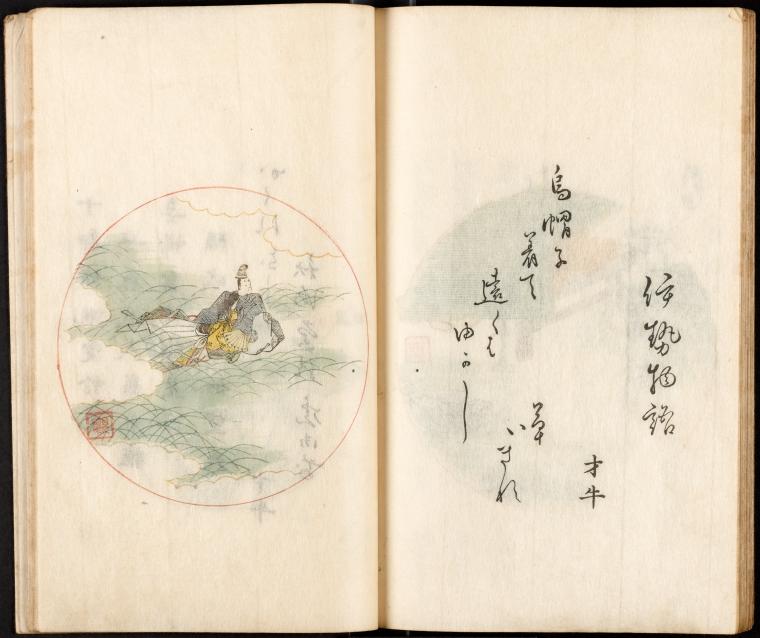 伊勢物語
才牛
烏帽子
着て
遠くは
ゆかし
草
いきれ